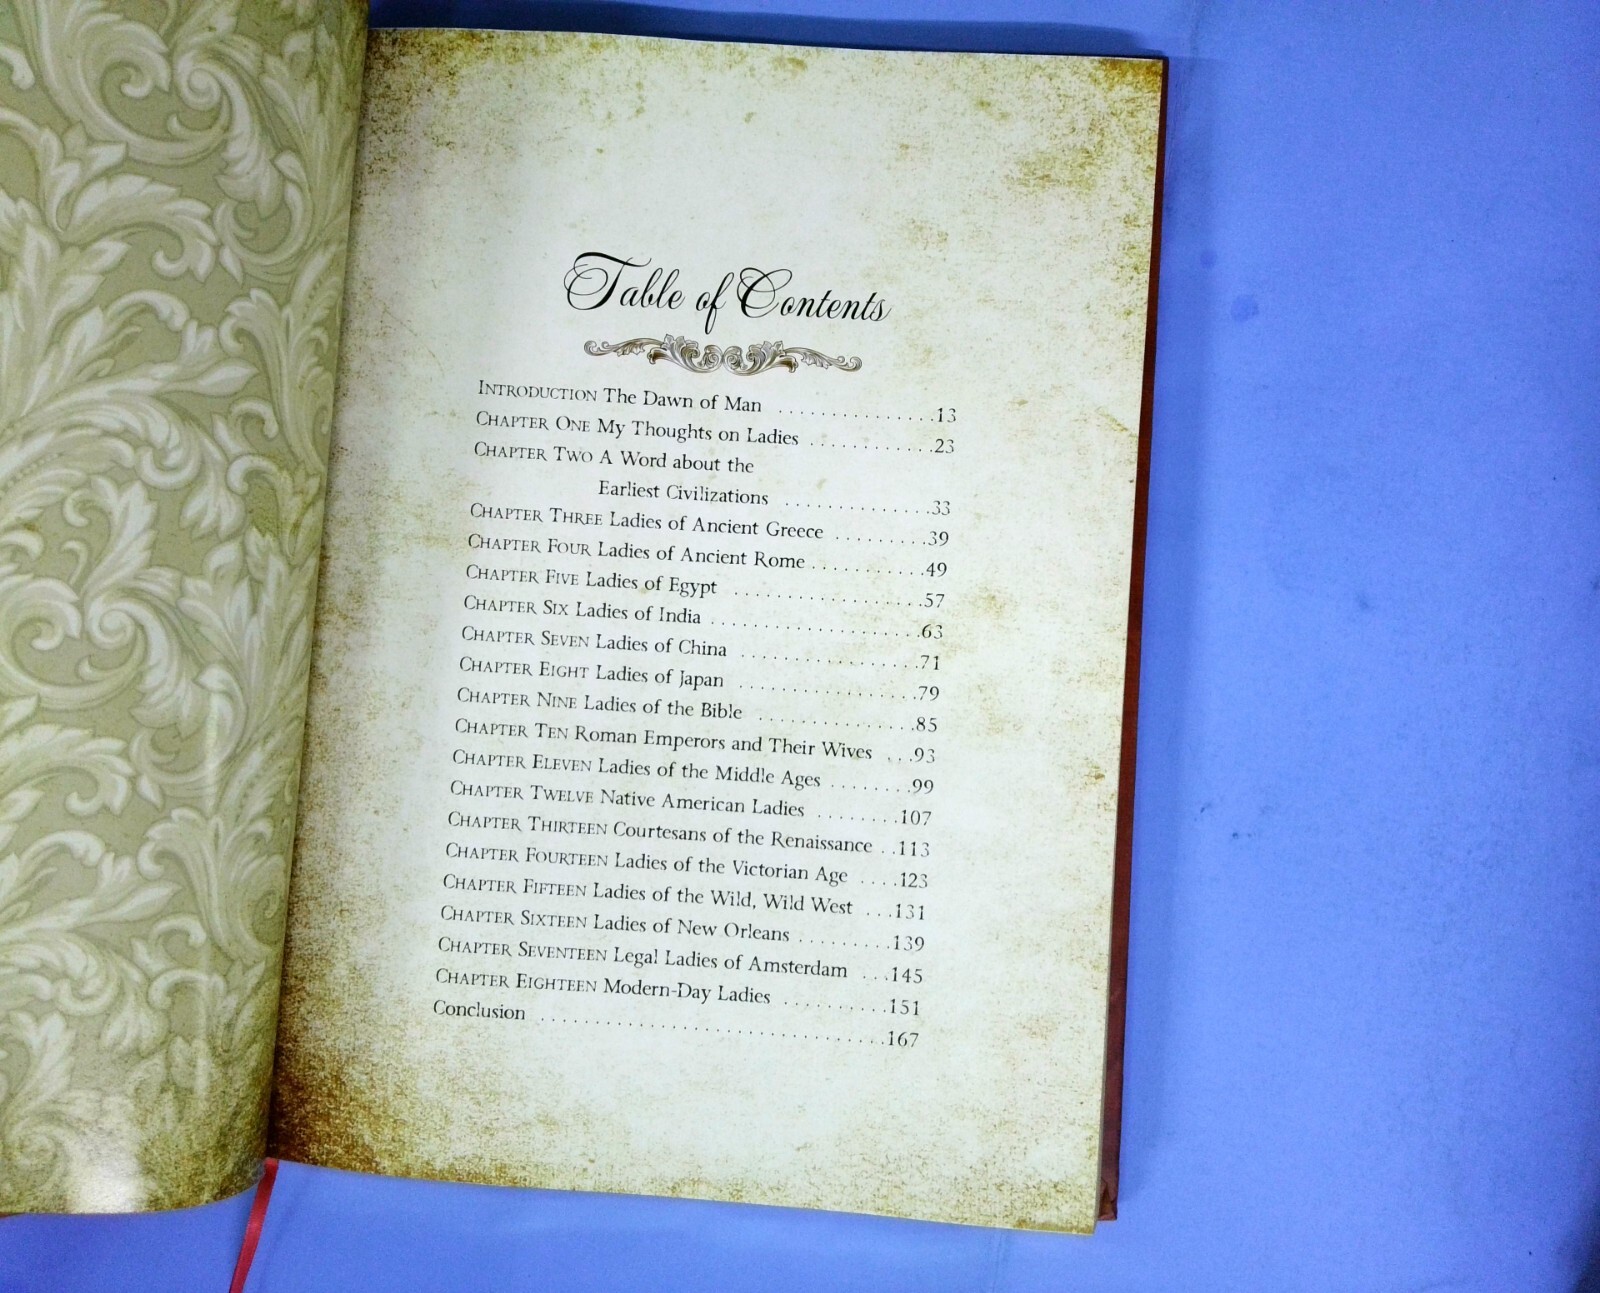 Table of Contents
INTRODUCTION The Dawn of Man ...............13
CHAPTER ONE My Thoughts on Ladies ............23
CHAPTER TWO A Word about the
Earliest Civilizations ..............33
CHAPTER THREE Ladies of Ancient Greece .........39
CHAPTER FOUR Ladies of Ancient Rome...........49
CHAPTER FIVE Ladies of Egypt ..................57
CHAPTER SIX Ladies of India ....................63
CHAPTER SEVEN Ladies of China .................71
CHAPTER EIGHT Ladies of Japan .................79
CHAPTER NINE Ladies of the Bible ...............85
CHAPTER TEN Roman Emperors and Their Wives ...93
CHAPTER ELEVEN Ladies of the Middle Ages ........99
CHAPTER TWELVE Native American Ladies ........107
CHAPTER THIRTEEN Courtesans of the Renaissance ..113
CHAPTER FOURTEEN Ladies of the Victorian Age ....123
CHAPTER FIFTEEN Ladies of the Wild, Wild West ...131
CHAPTER SIXTEEN Ladies of New Orleans .........139
CHAPTER SEVENTEEN Legal Ladies of Amsterdam ...145
CHAPTER EIGHTEEN Modern-Day Ladies ..........151
Conclusion .................................167